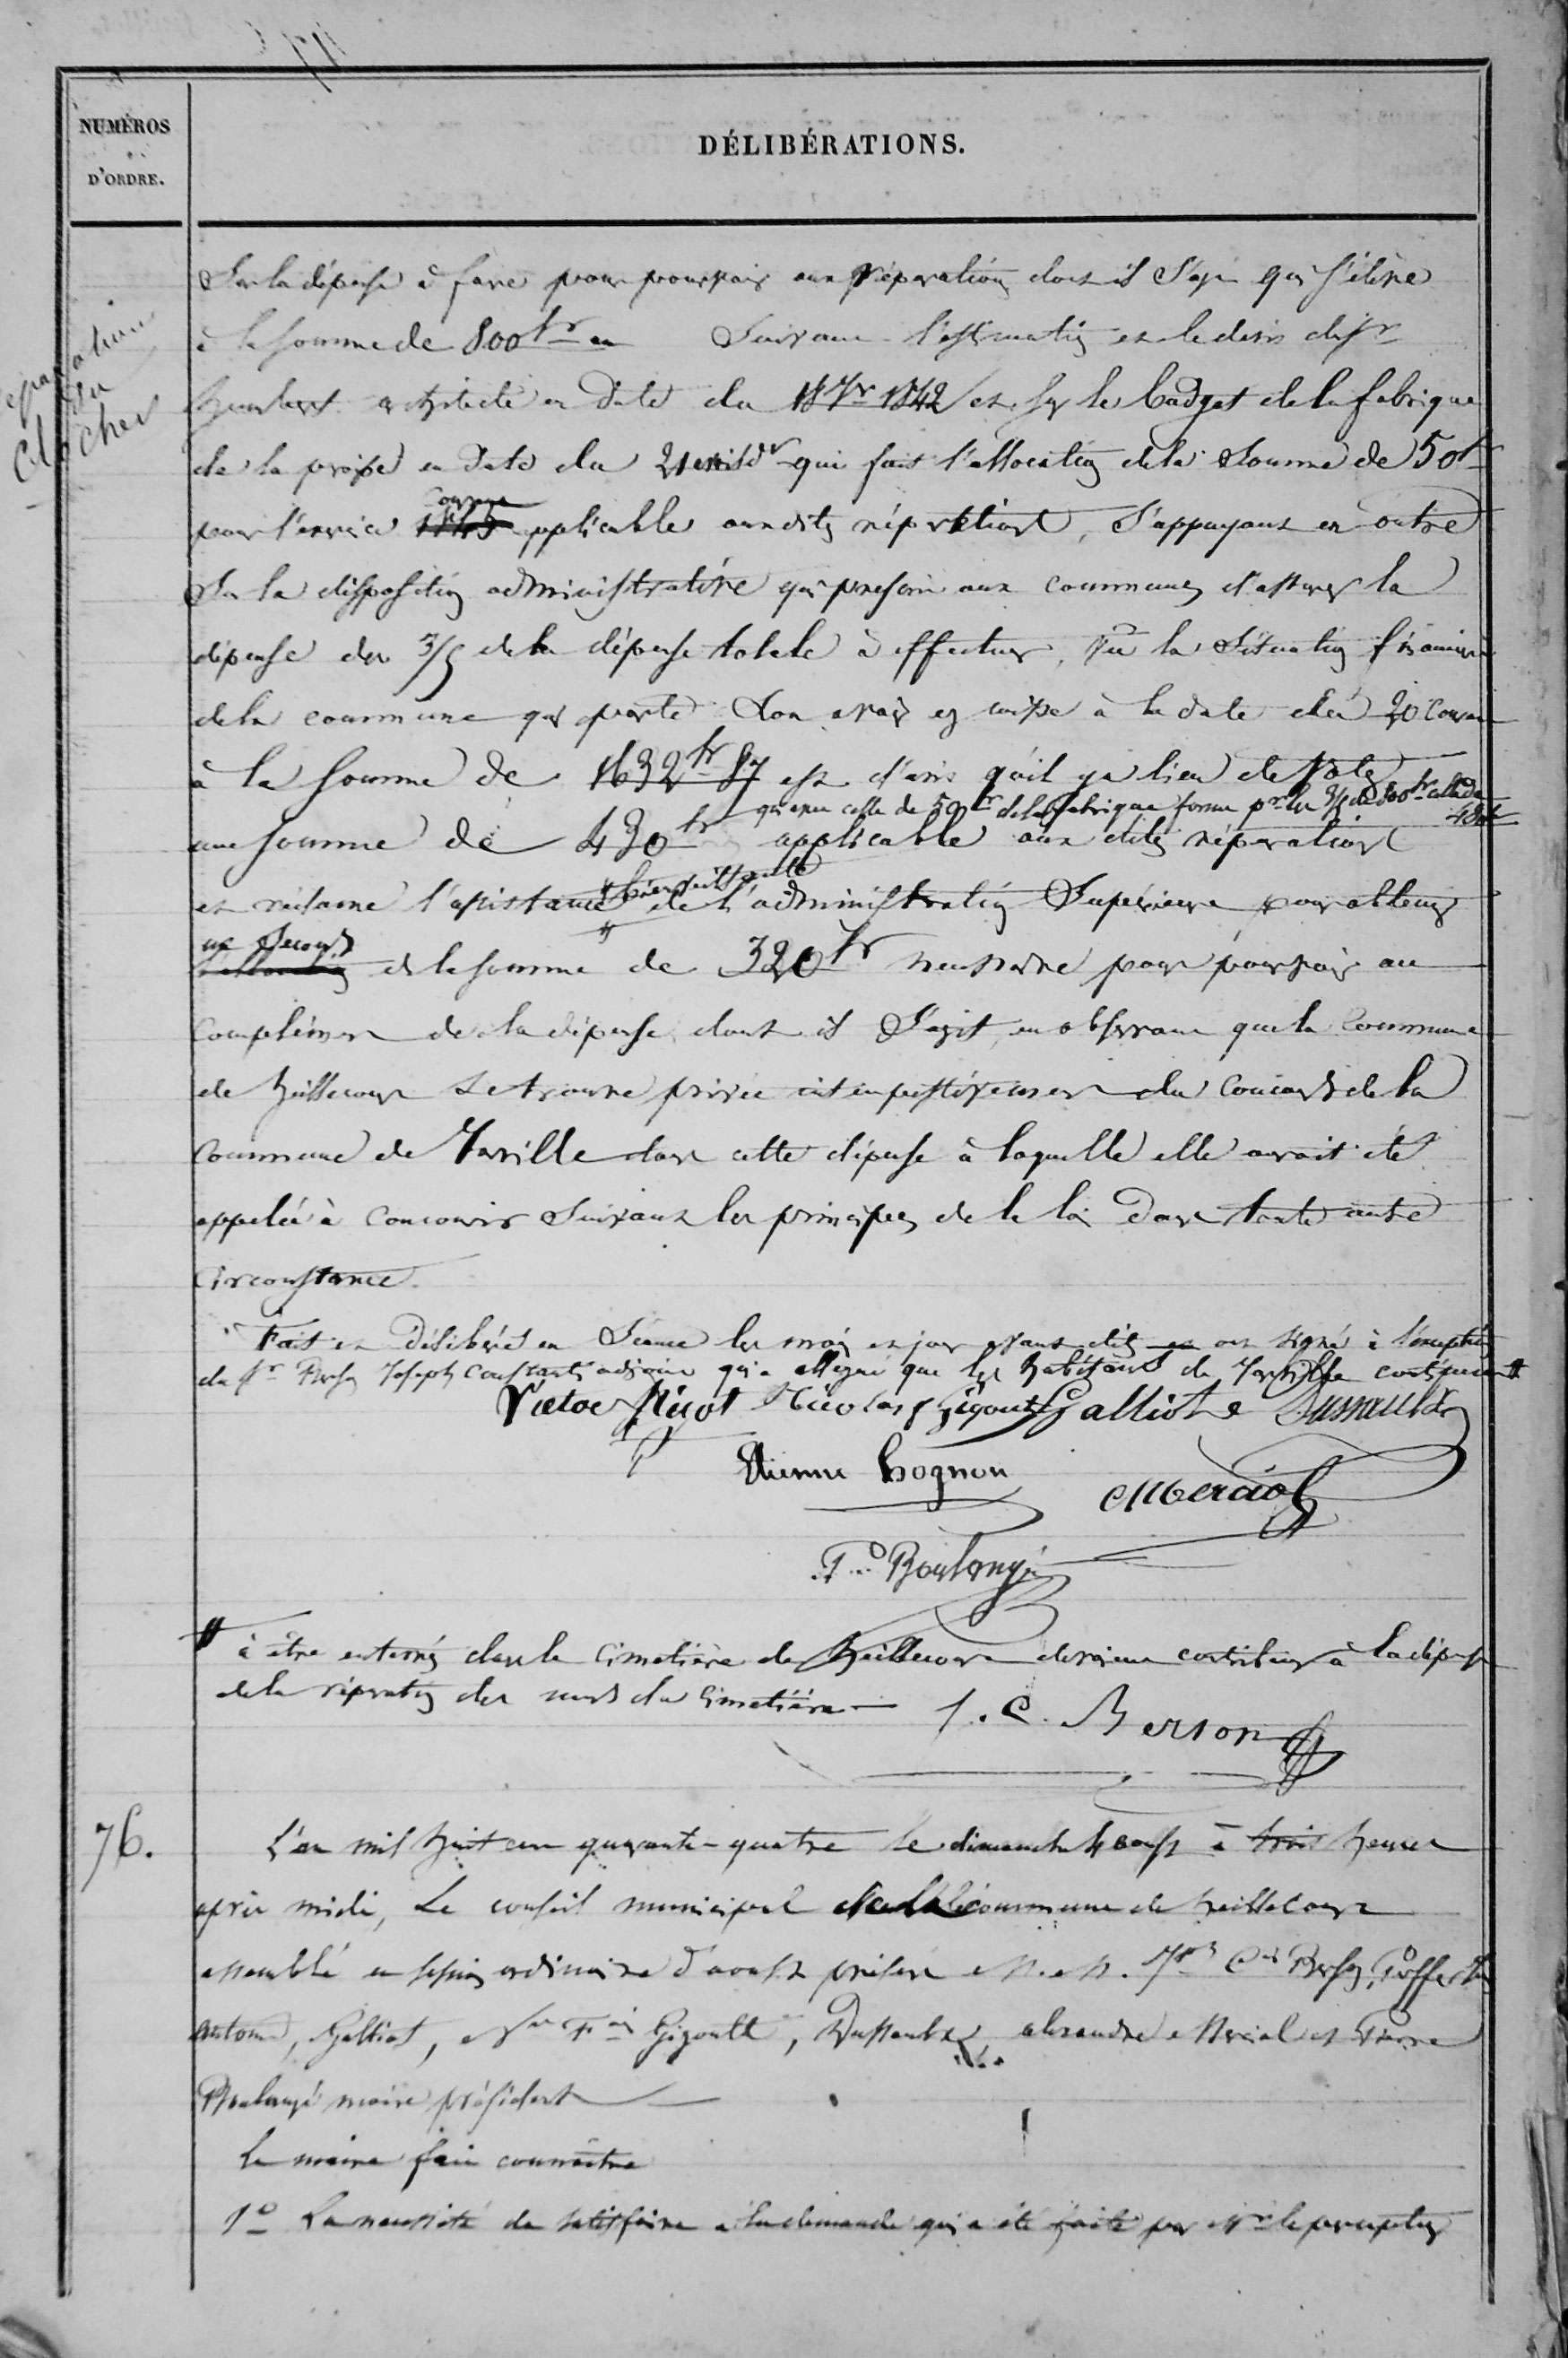 NUMÉROS
D'ORDRE.
DÉLIBÉRATIONS.
réparations
du
Clocher
Sur la dépense à faire pour pourvoir aux réparations dont il s'agit qui s'élève
à la somme de 800fr suivant l'estimation et le devis du Sr
Humbert architecte en date du 18 7r 1842 et sur le budget de la fabrique
de la proisse en date du 21 qui fait l'allocation de la somme de 50f
pour l'exercice 1845 courant applicable aux dites réparations, S'appuyant en outre
Sur la disposition administrative qui prescrit aux communes d'assurer la
dépense des 3/5 de la dépense totale à effectuer, Vu la Situation financière
de la commune qui porte Son avoir en caisse à la date du 20 Courant
à la somme de 1632fr 87 est d'avis qu'il y a lieu de voter
qui avec celle de 50fr de la fabrique forme pr les 3/5 de 800fr celle de 480f
une somme de 430fr applicable aux dites réparations
et réclame l'assistance bienveillante de l'administration Supérieure pour obtenir
un Secours
l'allocation de la somme de 320fr nécessaire pour pourvoir au
complément de la dépense dont il S'agit, en observant que la Commune
de heillecourt se trouve privée intempestivement du Concours de la
Commune de Jarville dans cette dépense à laquelle elle avait été
appelée à concourir Suivant les principes de la loi dans toute autre
Circonstance.
Fait et Délibéré en Séance les mois et jour avant dits et ont signé à l'exception
du Sr Berson Joseph Constant adjoint qui a allégué que les habitans de Jarville continuent #
Victor Nigot Nicolas f Gigout Galliot e Dussaulx
Etienne hognon
A Merciol
P. Boulangé
# à être enterrés dans le Cimetière de heillecourt devraient contribuer à la dépense
de la réparation des murs du Cimetière —
J. C. Berson
76.
L'an mil huit cent quarante-quatre le dimanche 4 aoust à trois heures
après midi, Le conseil municipal de la commune de heillecourt
assemblé en session ordinaire d'aoust présens M. M. Jph Ct Berson, Poffertin
Antoine, Galliot, Nas Fois Gigoult, Dussaulx, alexandre Merciol et Pierre
Boulangé maire président
Le maire fait connaitre
1° La nécessité de satisfaire à la demande qui a été faite par Mr le percepteur